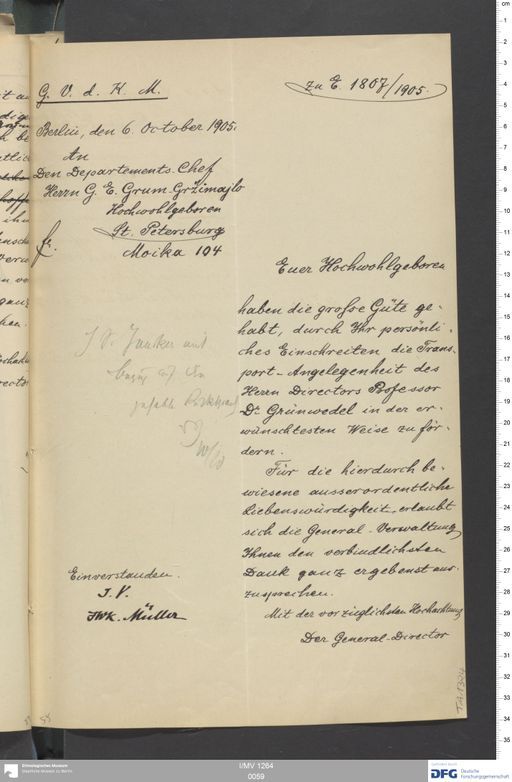 G. V. d. K. M.
zu E. 1807/1905.
Berlin, den 6. October 1905.
An
Den Departements-Chef
Herrn G. E. Grum Gržimajlo
Hochwohlgeboren
St. Petersburg
fr.
Moika 104
Euer Hochwohlgeboren
haben die große Güte ge-
habt, durch Ihr persönli-
ches Einschreiten die Trans-
port-Angelegenheit des
Herrn Directors Professor
Dr. Grünwedel in der er-
wünschtesten Weise zu för-
dern.
Für die hierdurch be-
wiesene ausserordentliche
Liebenswürdigkeit erlaubt
sich die General-Verwaltung
Ihnen den verbindlichsten
Dank ganz ergebenst aus-
zusprechen.
Mit der vorzüglichsten Hochachtung
Der General-Director
Einverstanden.
I. V.
FWK. Müller
55
TA 1324
Ethnologisches Museum
Staatliche Museen zu Berlin
I/MV 1264
0059
DFG Deutsche
Forschungsgemeinschaft